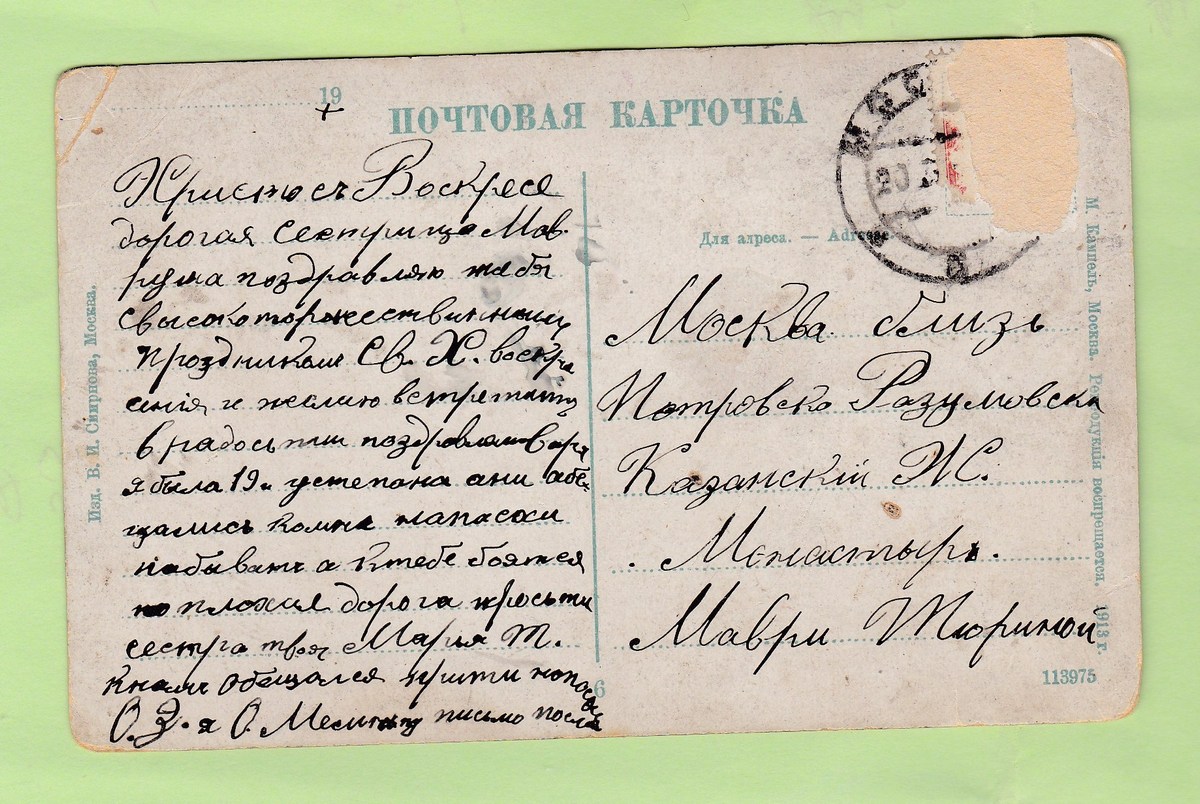 19
ПОЧТОВАЯ КАРТОЧКА
Христосъ Воскресе
дорогая сестрица Мав-
руша поздравляю тебя
свысокоторжественным
проздником Св. Х. воскре
сения и желаю встретить
в радости поздровляю Варя
я была 19 и устепана ани абе-
щались комне напасхи
побывать а ктебе боятся
но плохая дорога прости
сестра твоя Мария Т.
Кнам обещался прити напасхи
О. З. я О. письмо посла
Для адреса. — Adresse
Москва близь
Петровско Разумовска
Казанскій Ж.
Монастырь.
Маври Тюриной
Изд. В. И. Смирнова, Москва.
М. Кампель, Москва. Родукція воспрещается. 1913 г.
6
113975
МОСК
20